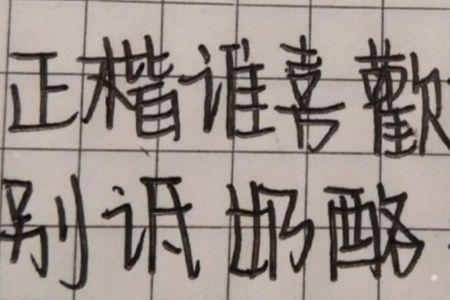 正楷谁喜歡
别诋奶酪